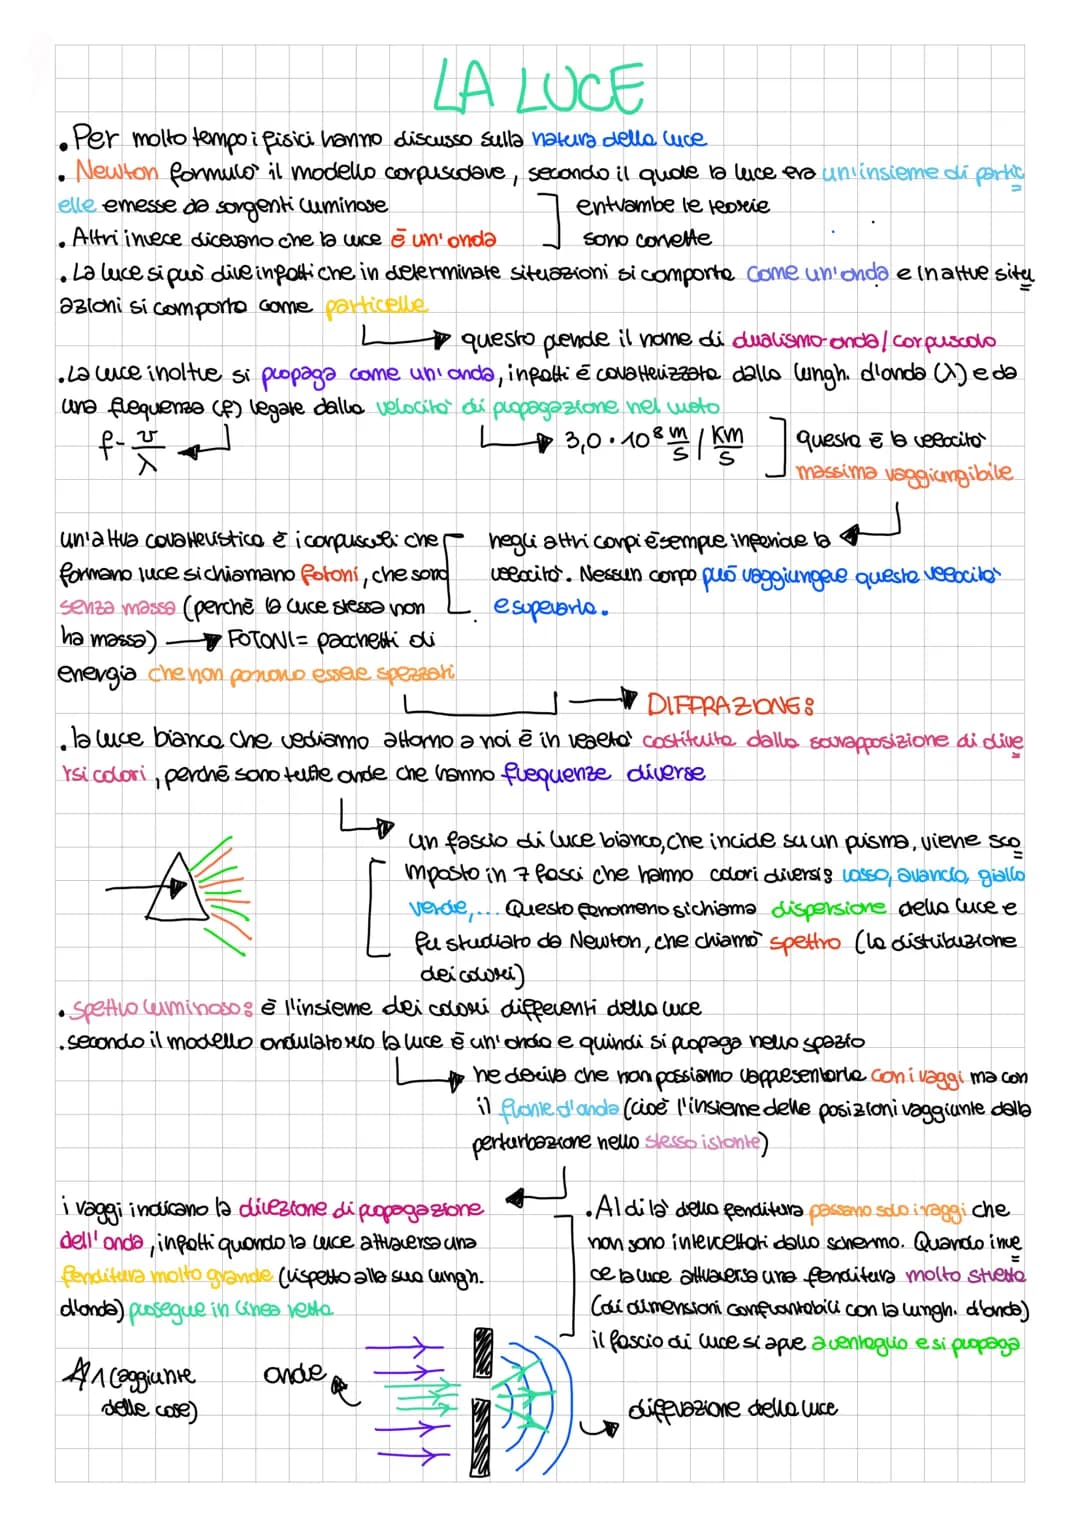 LA LUCE
. Per molto tempo i fisici hanno discusso sulla natura della luce
. Newton formulò il modello corpuscolare, secondo il quale la luce era un'insieme di partic
elle emesse da sorgenti luminose
entrambe le teorie
. Altri invece dicevano che la luce è un'onda
sono corrette
. La luce si può dire infatti che in determinate situazioni si comporta come un'onda e in altre situ
azioni si comporta come particelle
questo prende il nome di dualismo-onda/corpuscolo
. La luce inoltre si propaga come un'onda, infatti è caratterizzata dalla lungh. d'onda (λ) e da
una frequenza (f) legate dalla velocità di propagazione nel vuoto
f- v/λ
3,0 · 10⁸ m/s / Km/s
questa è la velocità
massima raggiungibile
un'altra caratteristica è i corpuscoli che
formano luce si chiamano fotoni, che sono
senza massa (perchè la luce stessa non
ha massa) → FOTONI= pacchetti di
energia che non possono essere spezzati
negli altri corpi è sempre inferiore la
velocità. Nessun corpo può raggiungere questa velocità
e superarla.
DIFFRAZIONE:
. la luce bianca che vediamo attorno a noi è in realtà costituita dalla sovrapposizione di dive
rsi colori, perché sono tutte onde che hanno frequenze diverse
un fascio di luce bianco, che incide su un prisma, viene sco
mposto in 7 fasci che hanno colori diversi: rosso, arancio, giallo
verde,... Questo fenomeno si chiama dispersione della luce e
fu studiato da Newton, che chiamò spettro (la distribuzione
dei colori)
. Spettro luminoso: è l'insieme dei colori differenti della luce
. secondo il modello ondulatorio la luce è un'onda e quindi si propaga nello spazio
ne deriva che non possiamo rappresentarla con i raggi ma con
il fronte d'onda (cioè l'insieme delle posizioni raggiunte dalla
perturbazione nello stesso istante)
i raggi indicano la direzione di propagazione
dell'onda, infatti quando la luce attraversa una
fenditura molto grande (rispetto alla sua lungh.
d'onda) prosegue in linea retta
. Al di là della fenditura passano solo i raggi che
non sono intercettati dallo schermo. Quando inve
ce la luce attraversa una fenditura molto stretta
(di dimensioni confrontabili con la lungh. d'onda)
il fascio di luce si apre a ventaglio e si propaga
(aggiunte
delle cose)
onde
diffrazione della luce